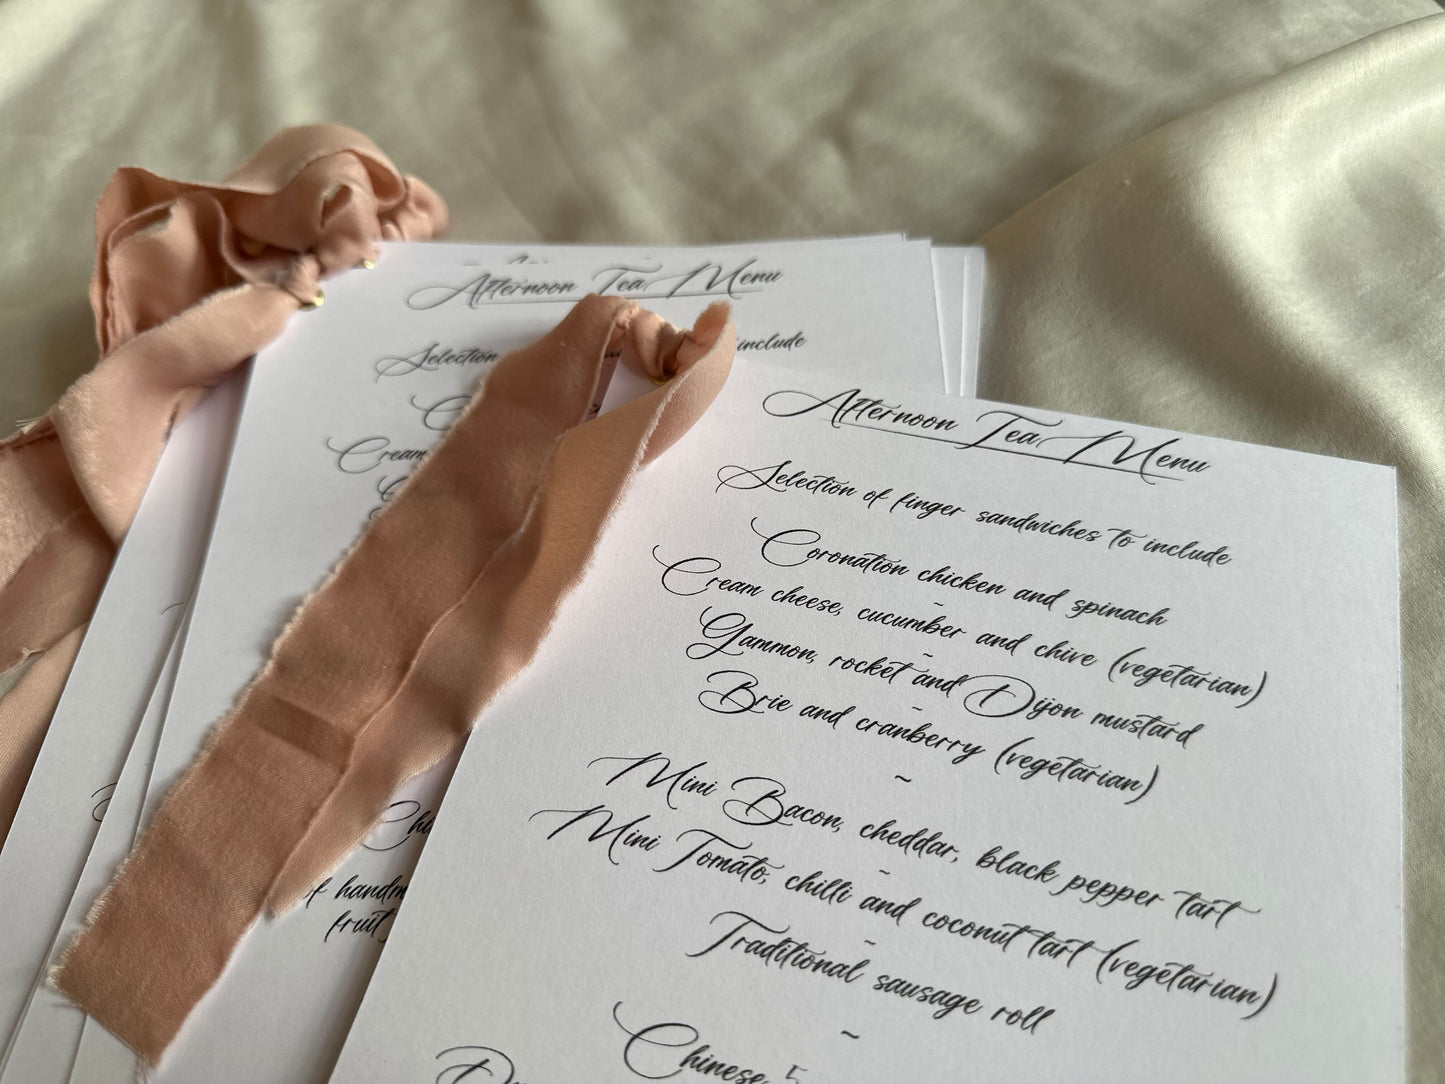 Afternoon Tea Menu
Selection
include
Cream
of handm
fruit
Afternoon Tea Menu
Selection of finger sandwiches to include
Coronation chicken and spinach
~
Cream cheese, cucumber and chive (vegetarian)
~
Gammon, rocket and Dijon mustard
~
Brie and cranberry (vegetarian)
~
Mini Bacon, cheddar, black pepper tart
~
Mini Tomato, chilli and coconut tart (vegetarian)
~
Traditional sausage roll
~
Chinese 5